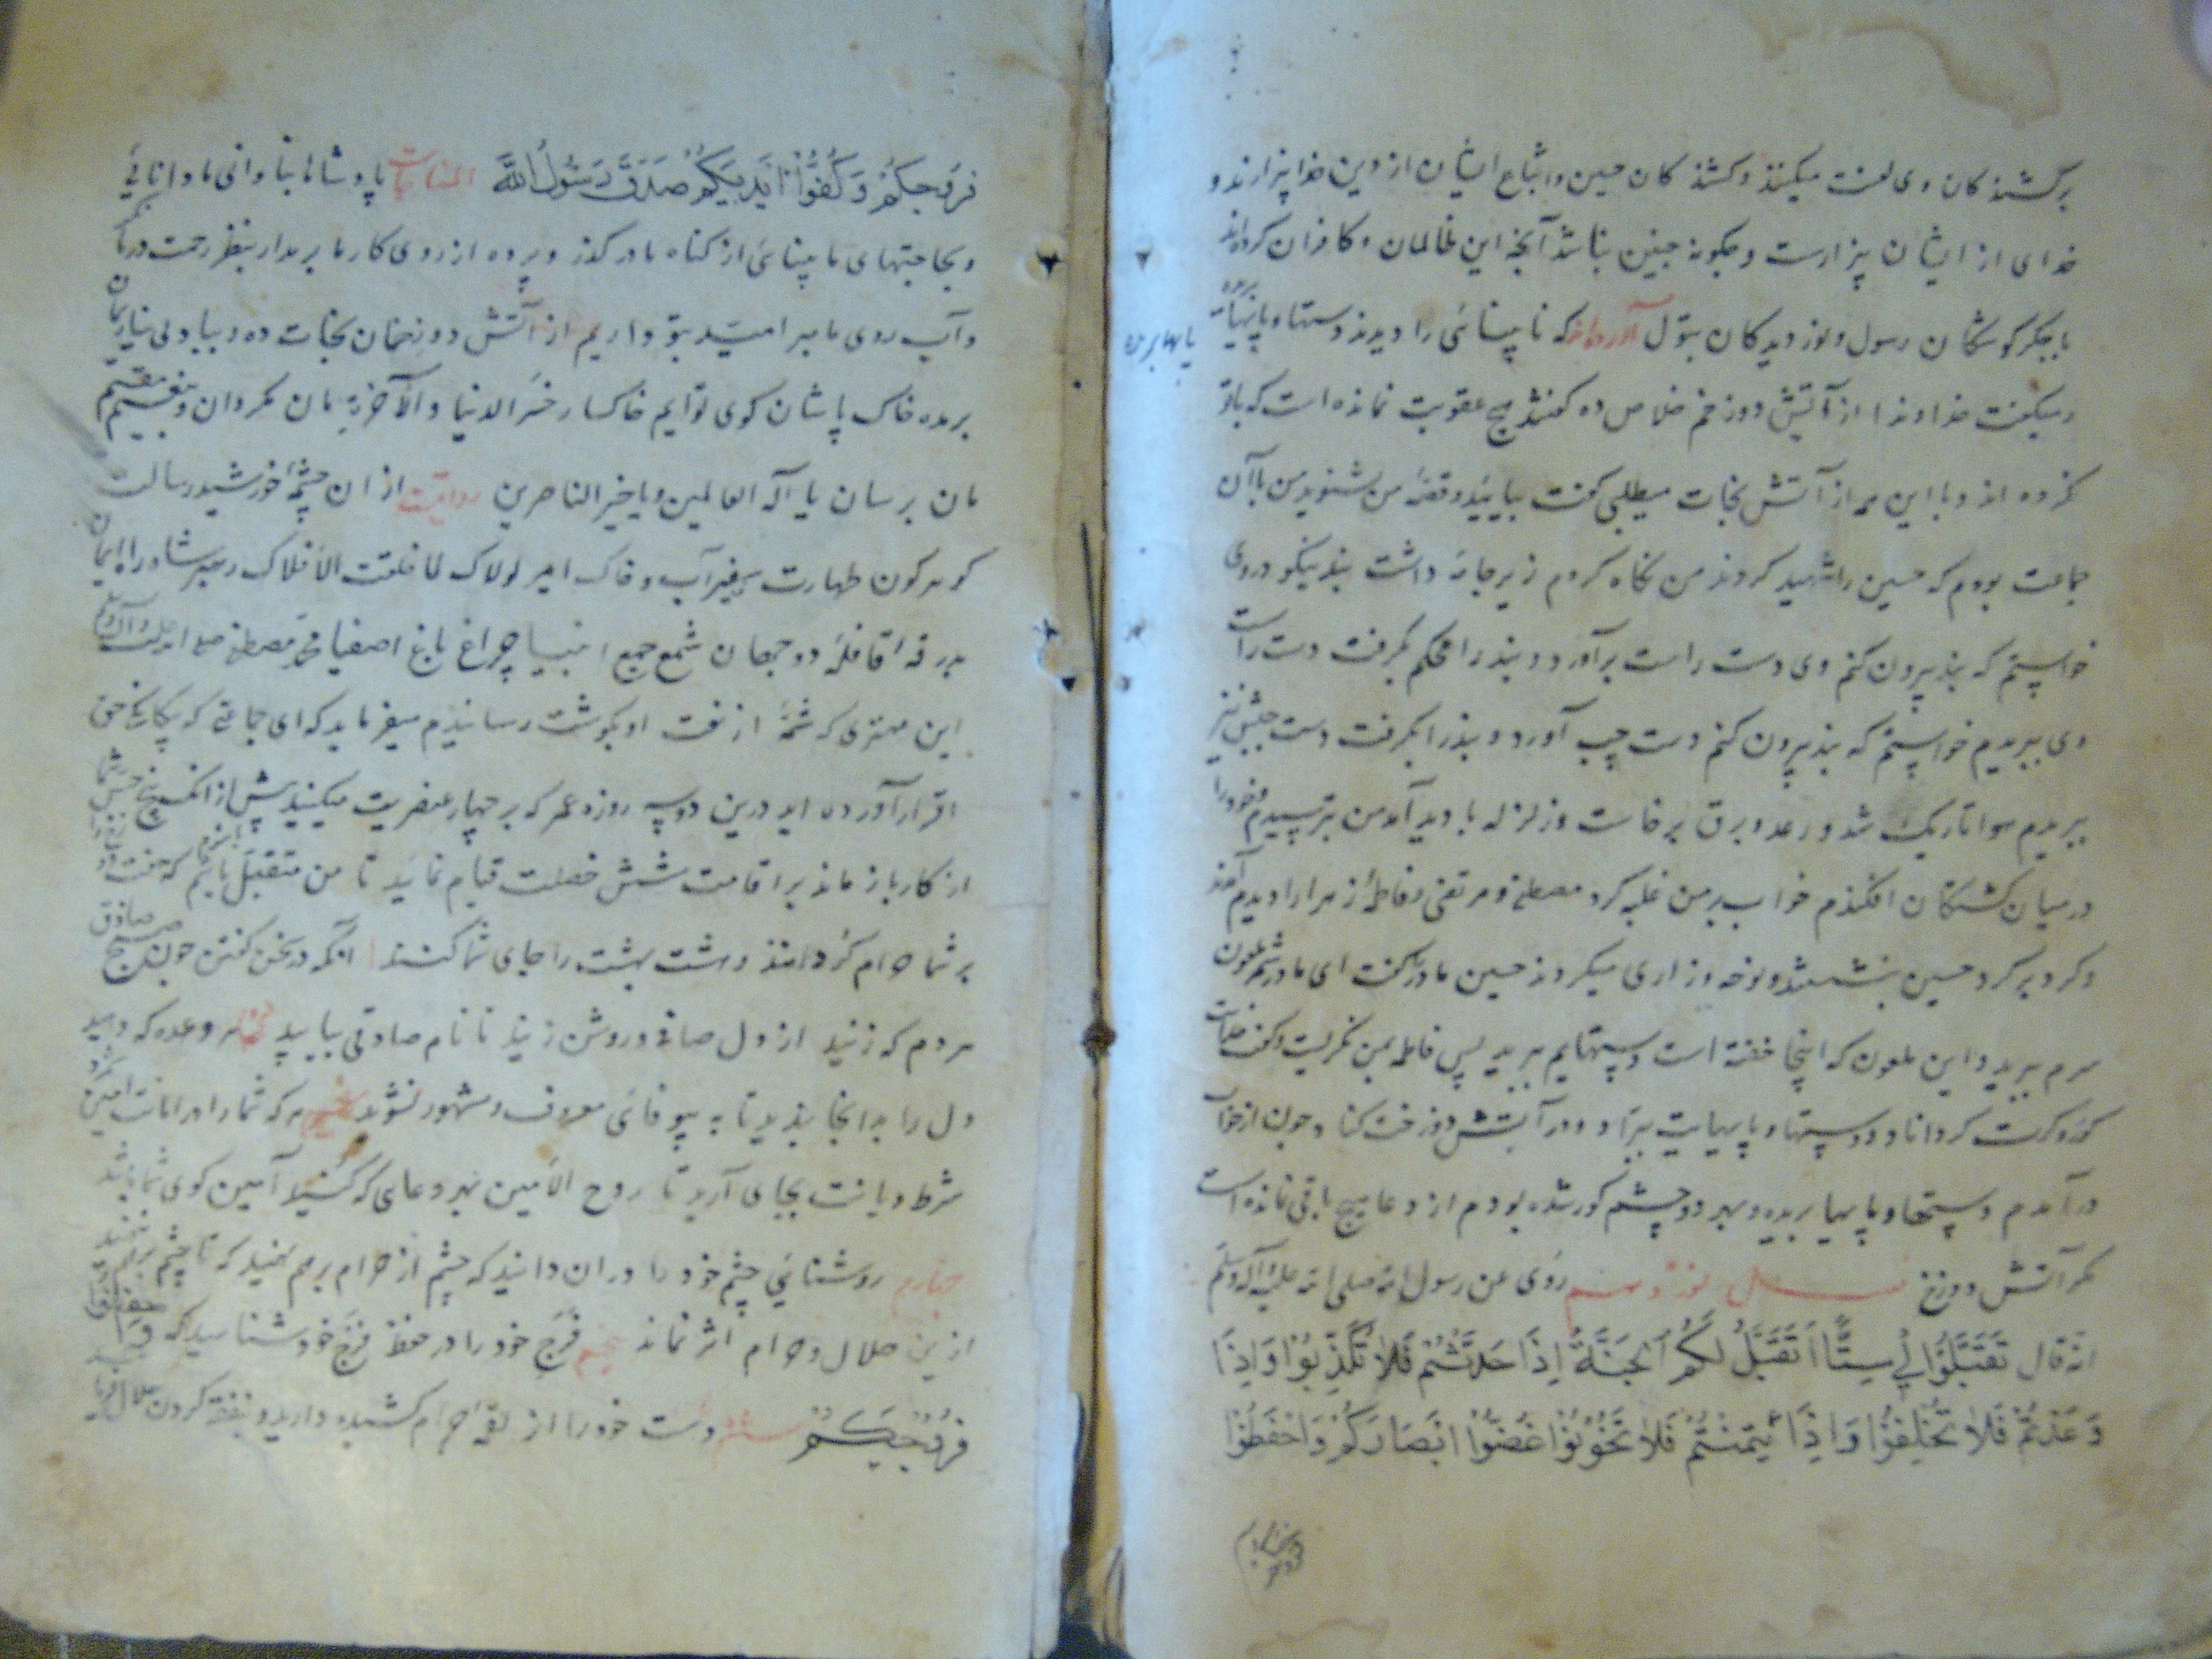 برکشندکان وی لعنت میکنند و کشندکان حسین و اتباع ایشان از دین خدا بیزارند و
خدای از ایشان بیزارست و چکونه چنین نباشد آنچه این ظالمان و کافران کرده‌اند
با جکرکوشکان رسول و نوردیدکان بتول آورده‌اند که نابینائی را دیدند دستها و پایها بریده
پایها بریده
و میکفت خداوندا از آتش دوزخم خلاص ده کفتند هیچ عقوبت نمانده است که با تو
نکرده اند و با این همه از آتش نجات میطلبی کفت بیایید و قصه من شنوید من با آن
جماعت بودم که حسین را شهید کردند من نکاه کردم زیرجامه داشت بند نیکو در وی
خواستم که بند بیرون کنم وی دست راست برآورد و بند را محکم بکرفت دست راست
وی ببریدم خواستم که بند بیرون کنم دست چپ آورد و بند را بکرفت دست چپش نیز
ببریدم هوا تاریک شد و رعد و برق برخاست و زلزله بادید آمد من بترسیدم و خود را
در میان کشتکان افکندم خواب بر من غلبه کرد مصطفی و مرتضی و فاطمه زهرا را دیدم آمدند
و کرد بر کرد حسین بنشستند و نوحه و زاری میکردند حسین مادر را کفت ای مادر شمر ملعون
سرم ببرید و این ملعون که اینجا خفته است دستهایم ببرید پس فاطمه بمن نکریست و کفت خدات
کور و کرت کرداناد و دستها و پایهایت ببراد و در آتش دوزخت کناد چون از خواب
درآمدم دستها و پایها بریده و بهر دو چشم کور شده بودم از دعا هیچ باقی نمانده است
مکر آتش دوزخ روی عن رسول الله صلی الله علیه و آله و سلم
انه قال تَقَبَّلُوا لِی سِتًّا اَتَقَبَّلُ لَکُمُ الجَنَّةَ اِذَا حَدَّثْتُمْ فَلَا تَکْذِبُوا وَاِذَا
وَعَدْتُمْ فَلَا تُخْلِفُوا وَاِذَا ایتُمِنْتُمْ فَلَا تَخُونُوا غُضُّوا اَبْصَارَکُمْ وَاحْفَظُوا
فُرُوجَکُمْ وَکُفُّوا اَیْدِیَکُمْ صَدَقَ رَسُولُ اللهِ المناجات پادشاها بتوانی ما دانائی
و بحاجتهای ما بینائی از کناه ما درکذر و پرده از روی کار ما برمدار بنظر رحمت در ما
و آب روی ما مبر امید بتو داریم از آتش دوزخمان نجات ده
برمده خاک پاشان کوی توایم خاکسار خسر الدنیا و الآخرة مان مکردان
مان برسان یا اله العالمین و یا خیر الناصرین روایت از ان چشمه خورشید رسالت
کوهر کون طهارت آب و خاک امیر لولاک لما خلقت الافلاک
بدرقه قافله دو جهان شمع جمع انبیا چراغ باغ اصفیا محمد مصطفی صلی الله علیه و آله
این مهتری که شمه از نعت او بکوشت رسانیدم میفرماید که ای جماعتی که
اقرار آورده اید درین دو سه روزه عمر که بر چهار عنصریت میکنید پیش از انکه
از کار باز ماند بر اقامت شش خصلت قیام نمائید تا من متقبل باشم که هفت
بر شما حرام کردانند و هشت بهشت را جای شما کنند انکه در سخن کفتن چون صبح صادق
مردم که زنید از دل صافی و روشن زنید تا نام صادقی بیابید وعده که دهید
دل را بر انجا بندید تا به بیوفائی معروف و مشهور نشوید هر که شما را در امانت امین
شرط دیانت بجای آرید تا روح الامین بهر دعای که کنید آمین کوی شما باشد
چهارم روشنائی چشم خود را در ان دانید که چشم از حرام برهم نهید که تا چشم
ازین حلال و حرام اثر نماند پنجم فرج خود را در حفظ فرج خود شناسید که
فُرُوجَکُمْ ششم دست خود را از لقمه حرام کشیده دارید و بنفقه کردن حلال